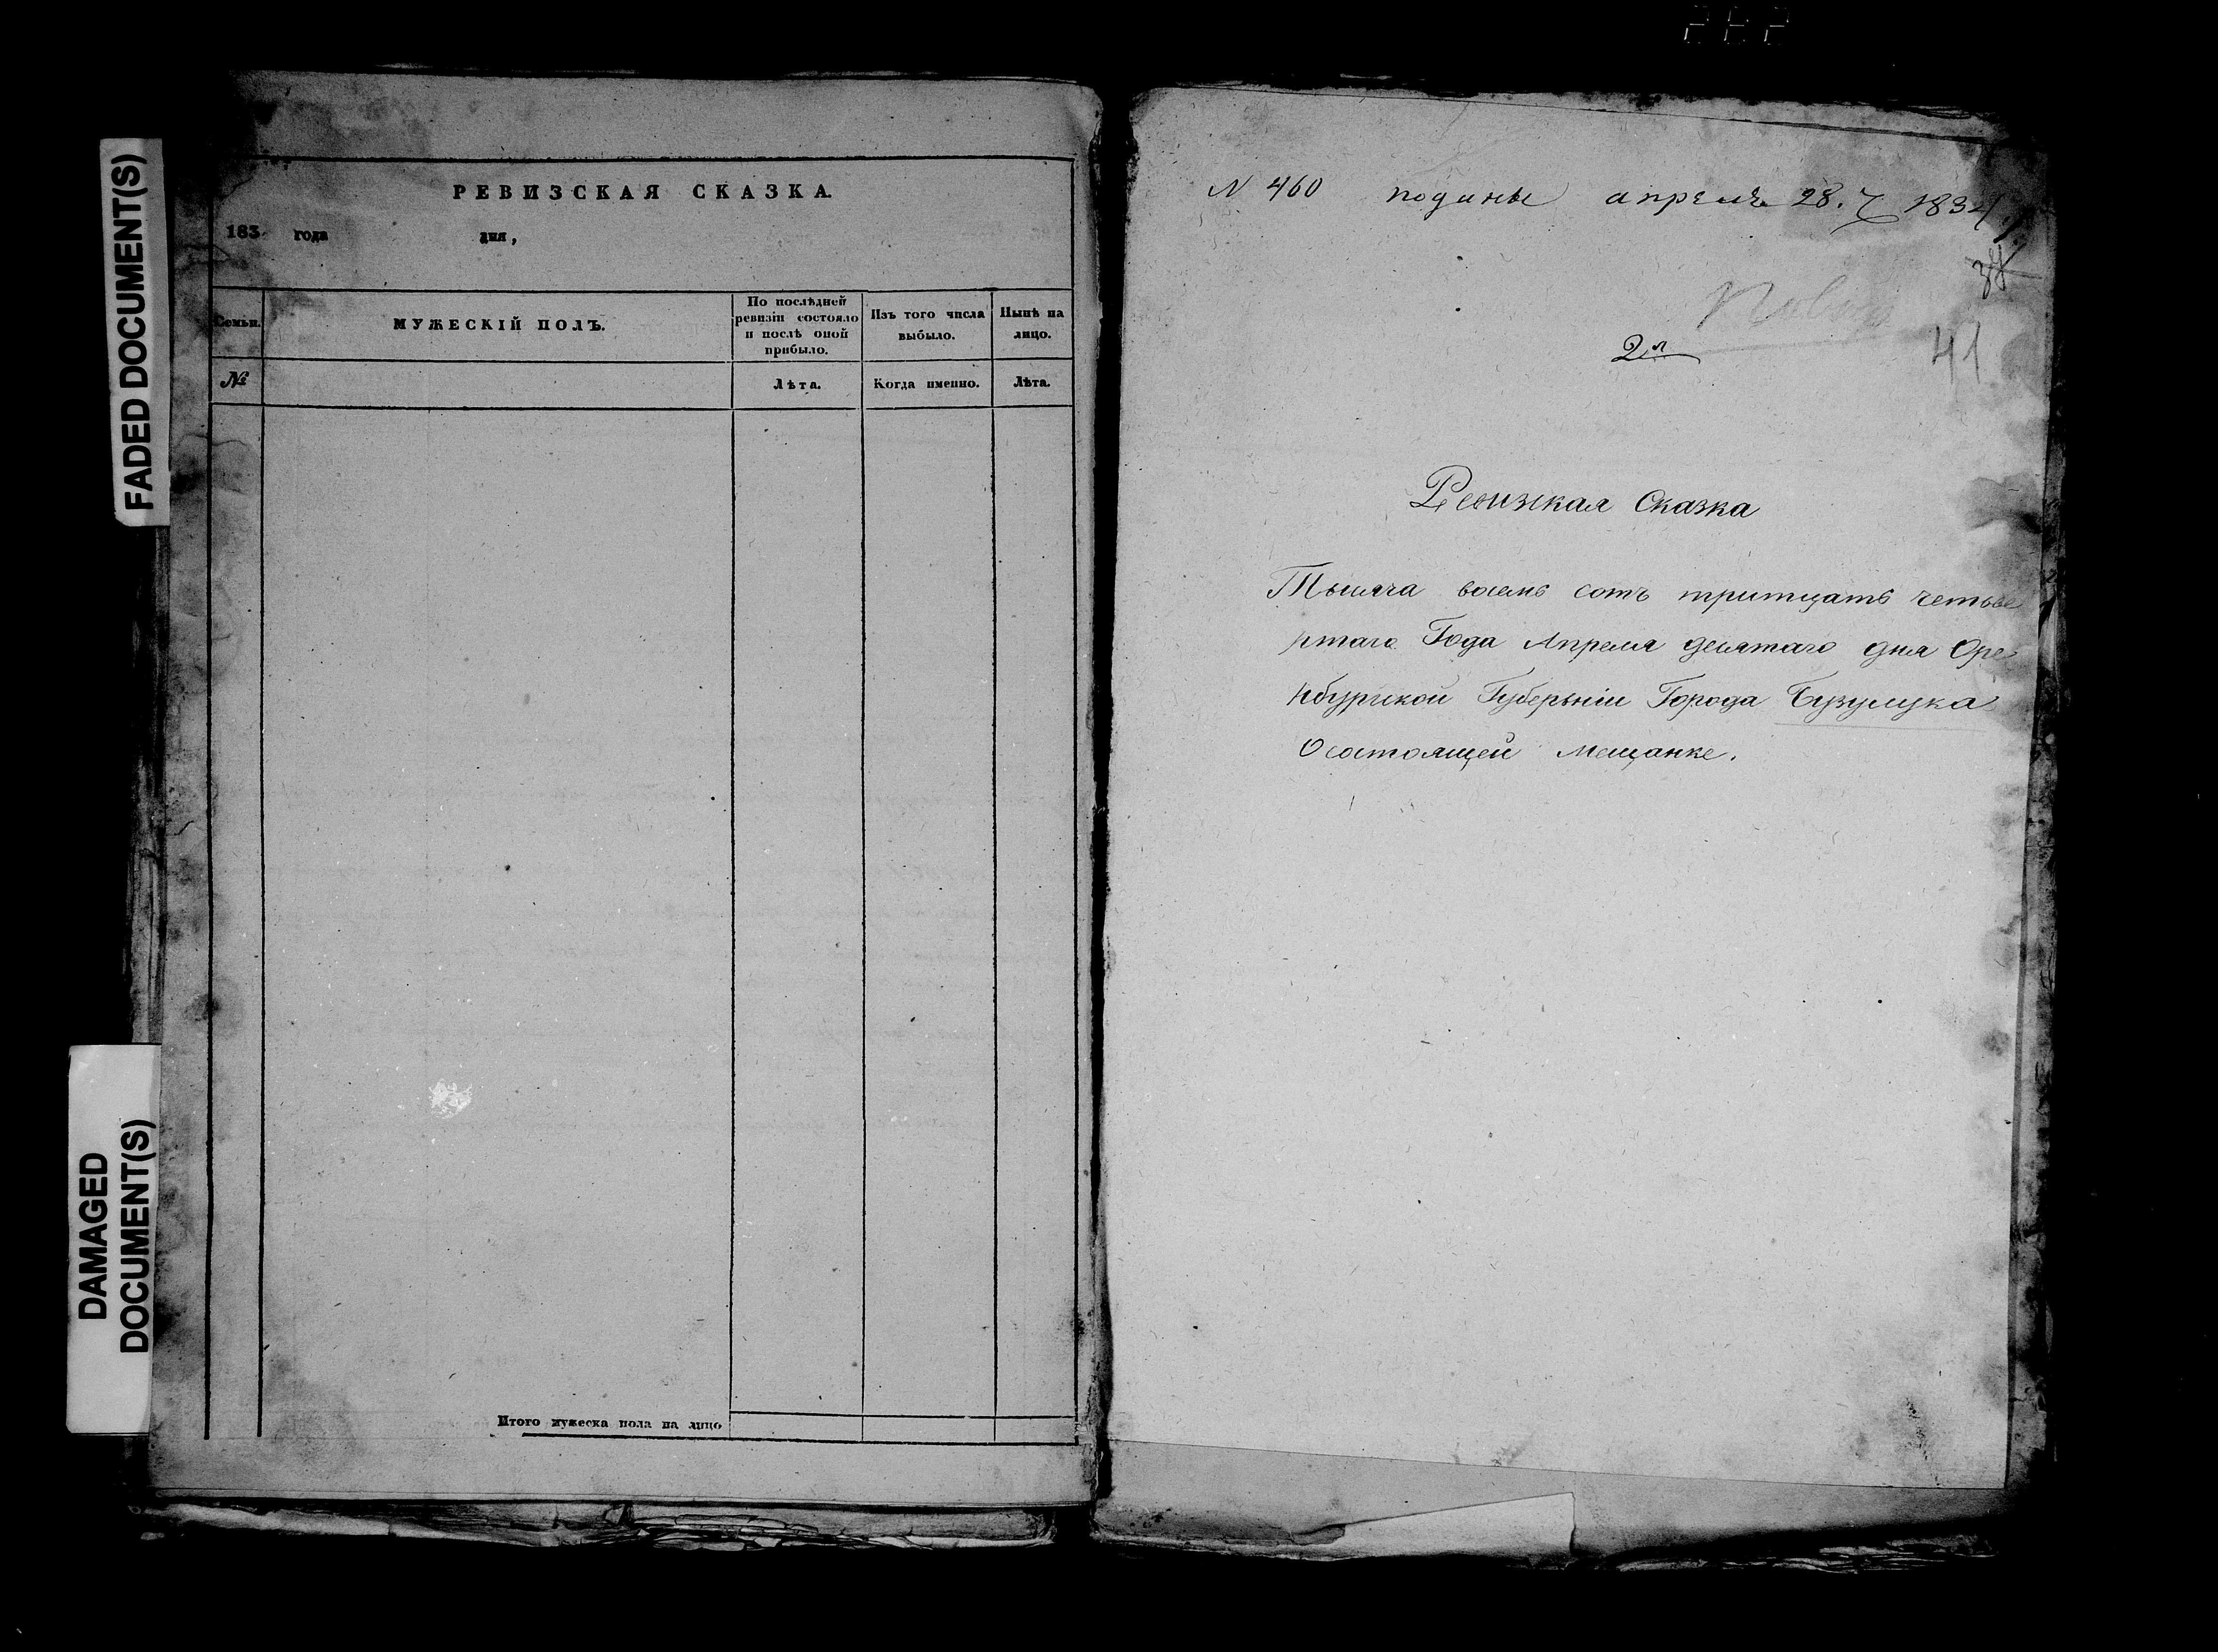 FADED DOCUMENT(S)
DAMAGED
DOCUMENT(S)
РЕВИЗСКАЯ СКАЗКА.
183 года дня,
Семьи.
МУЖЕСКІЙ ПОЛЪ.
По послѣдней
ревизіи состояло
и послѣ оной
прибыло.
Изъ того числа
выбыло.
Нынѣ на
лицо.
№
Лѣта.
Когда именно.
Лѣта.
Итого мужеска пола на лицо
N 460 поданы апреля 28. 1834
41
Ревизкая Сказка
Тысяча восемь сотъ тритцать четьве
ртаго Года Апреля десятаго дня Оре
нбургской Губерьніи Города Бузулука
О состоящей Мещанке.